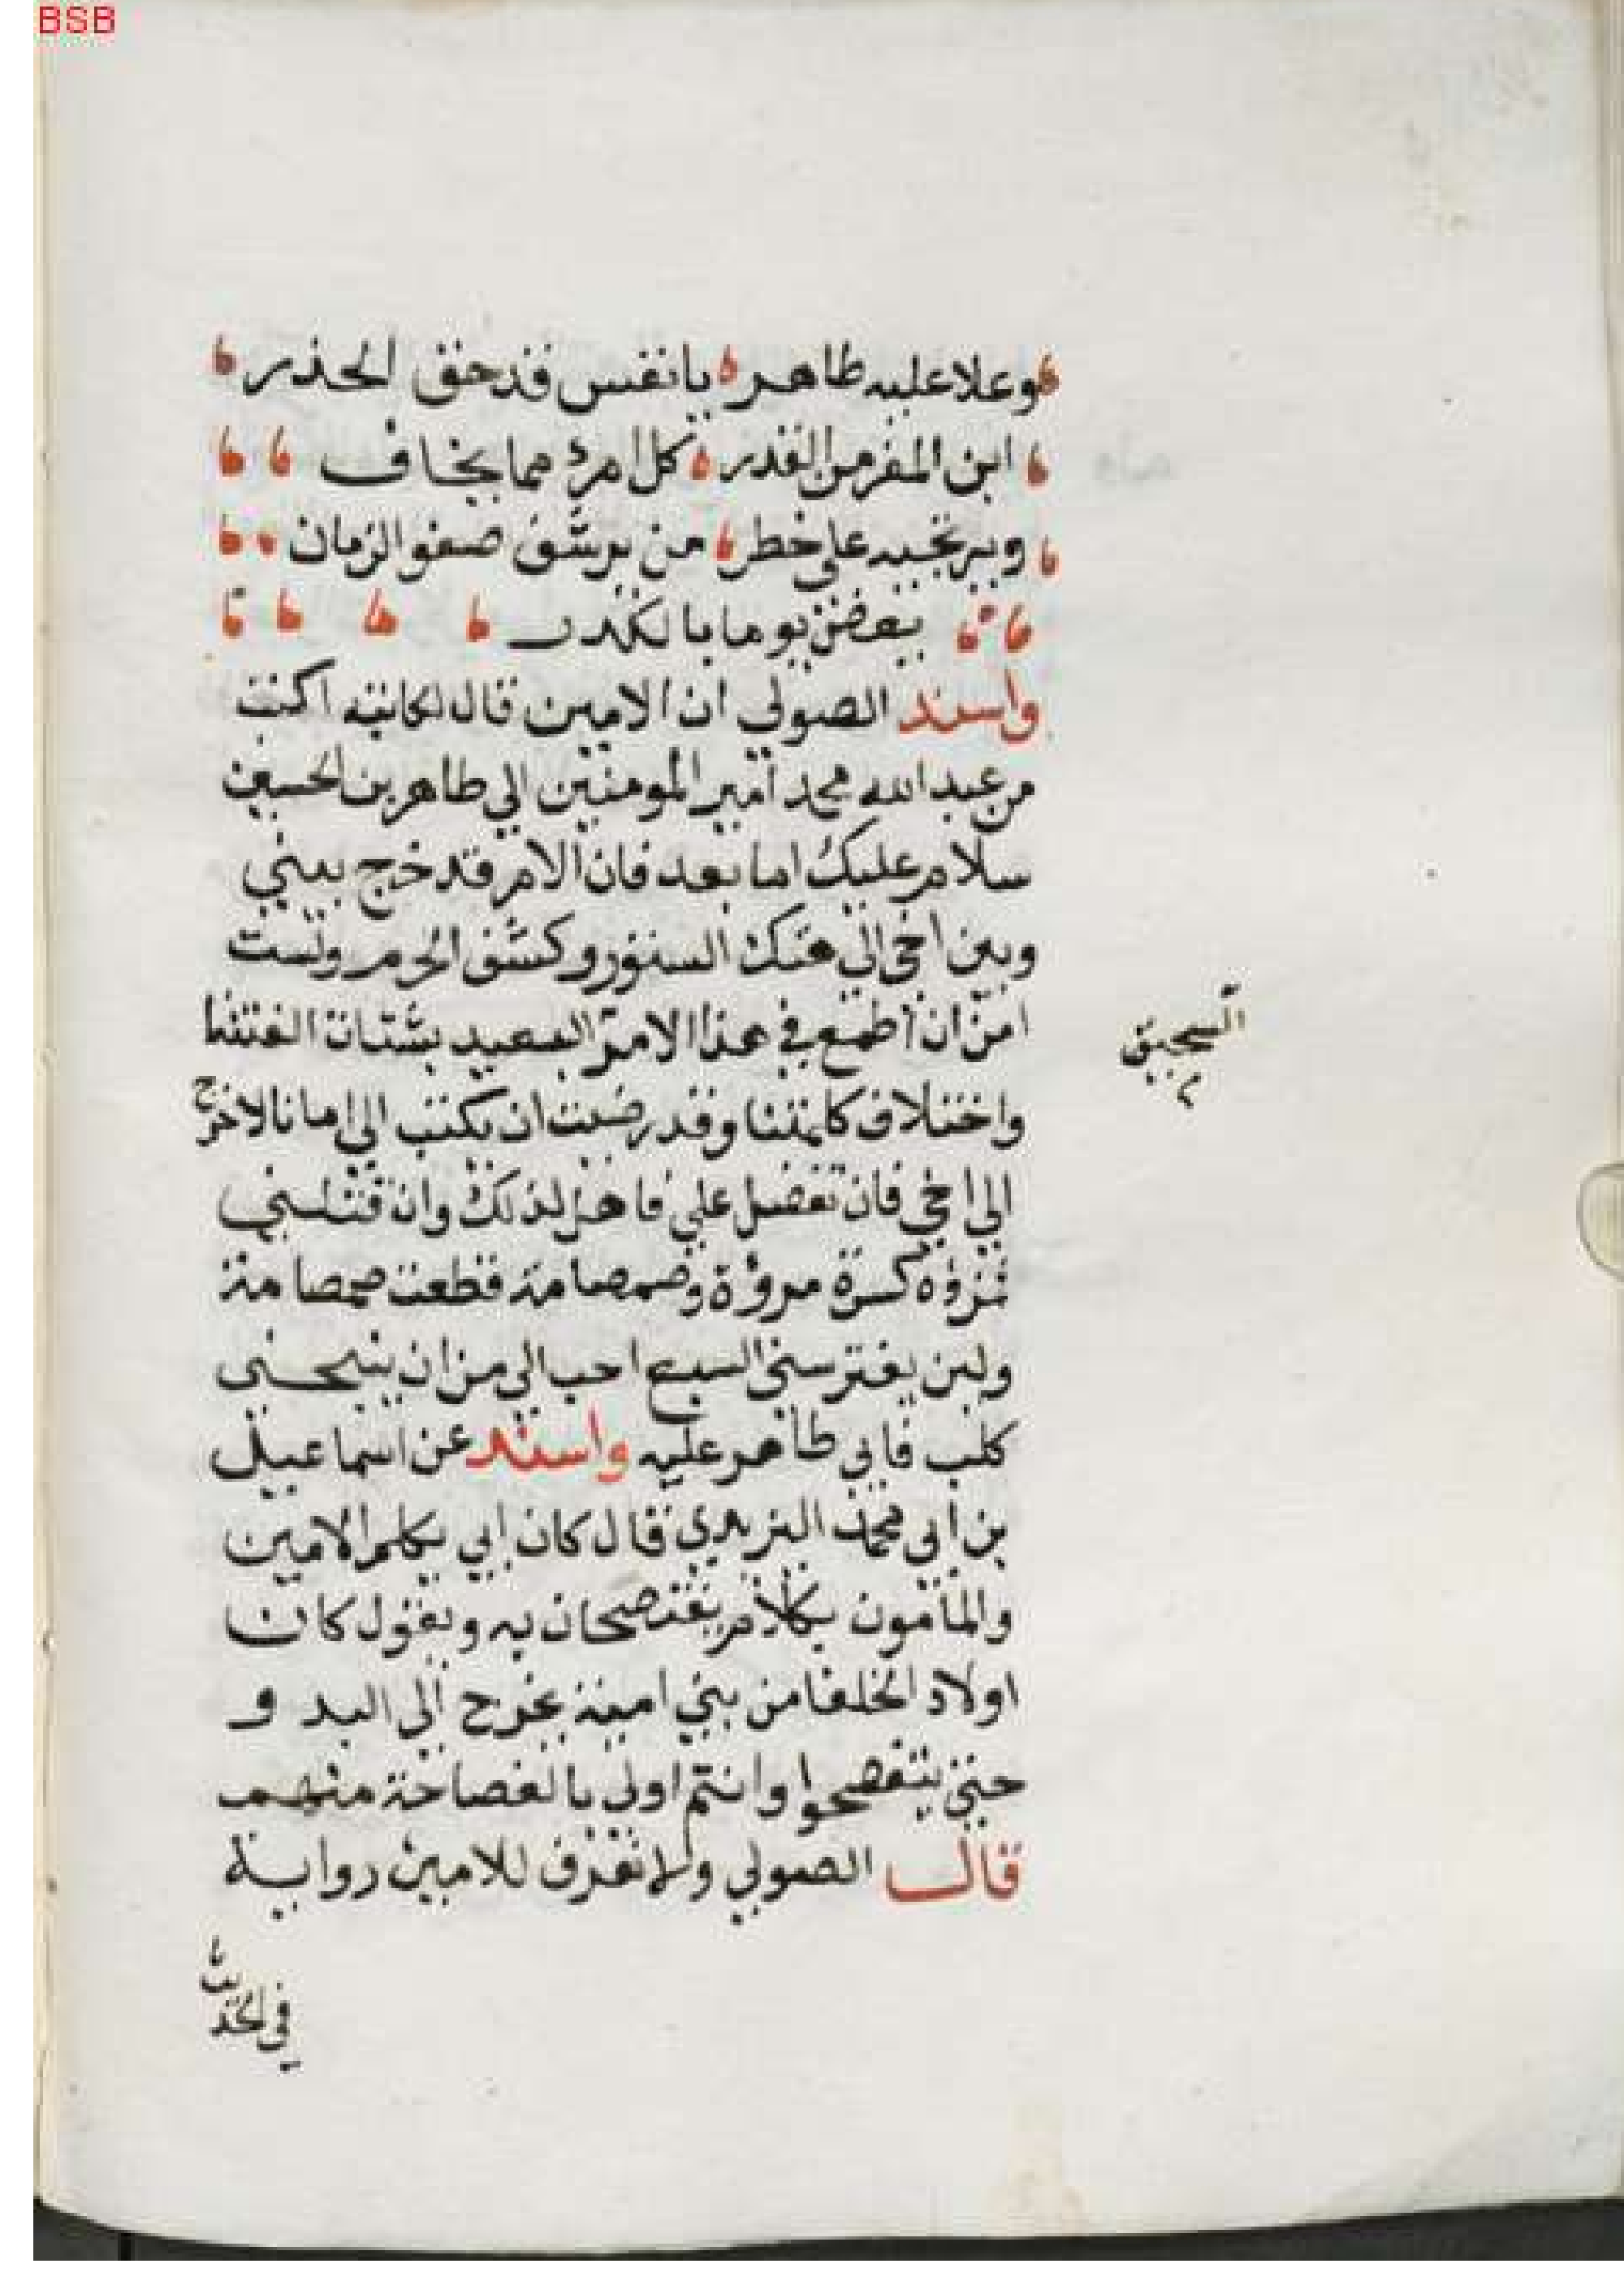 BSB
وعلا عليه طاهر يا نفس قد حق الحذر
اين المفر من القدر كل امرئ مما يخاف
ويرتجيه على خطر من يرتشق صفو الزمان
يغض يوما بالكدر
واسند الصولي ان الامين قال لكاتبه اكتب
من عبد الله محمد امير المومنين الي طاهر بن الحسين
سلام عليك اما بعد فان الامر قد خرج بيني
وبين اخي الي هتك الستور وكشف الحرم ولست
امن ان اطمع في هذا الامر السحيق البعيد بشتات الفتنا
واختلاف كلمتنا وقد رضيت ان تكتب الي امانا لاخرج
الي اخي فان تفضل علي فاهل لذلك وان قتلني
فمروه كسرة مروة وصمصامة قطعت صمصامة
ولين يفترسني السبع احب الي من ان ينبحني
كلب فابي طاهر عليه واسند عن اسماعيل
بن ابي محمد اليزيدي قال كان ابي يكلم الامين
والمامون بكلام يفتصحان به ويقول كان
اولاد الخلفا من بني امية يخرج الي البدو
حتي يتفصحوا وانتم اولي بالفصاحة منهم
قال الصولي ولا نعرف للامين رواية
في الحديث